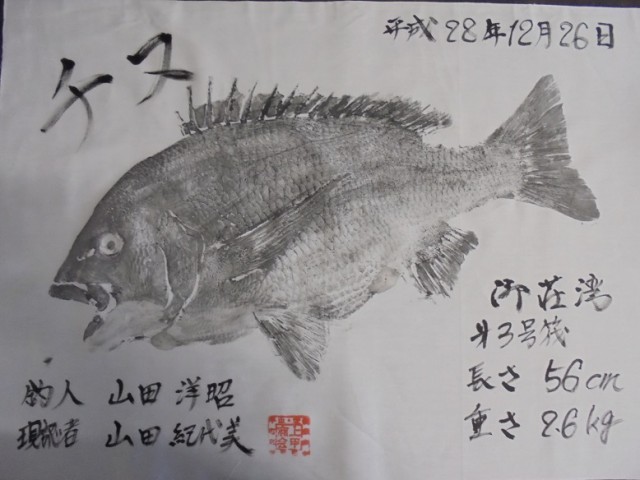 平成28年12月26日
チヌ
御荘湾
才3号筏
長さ 56cm
重さ 2.6kg
釣人 山田 洋昭
現認者 山田 紀代美